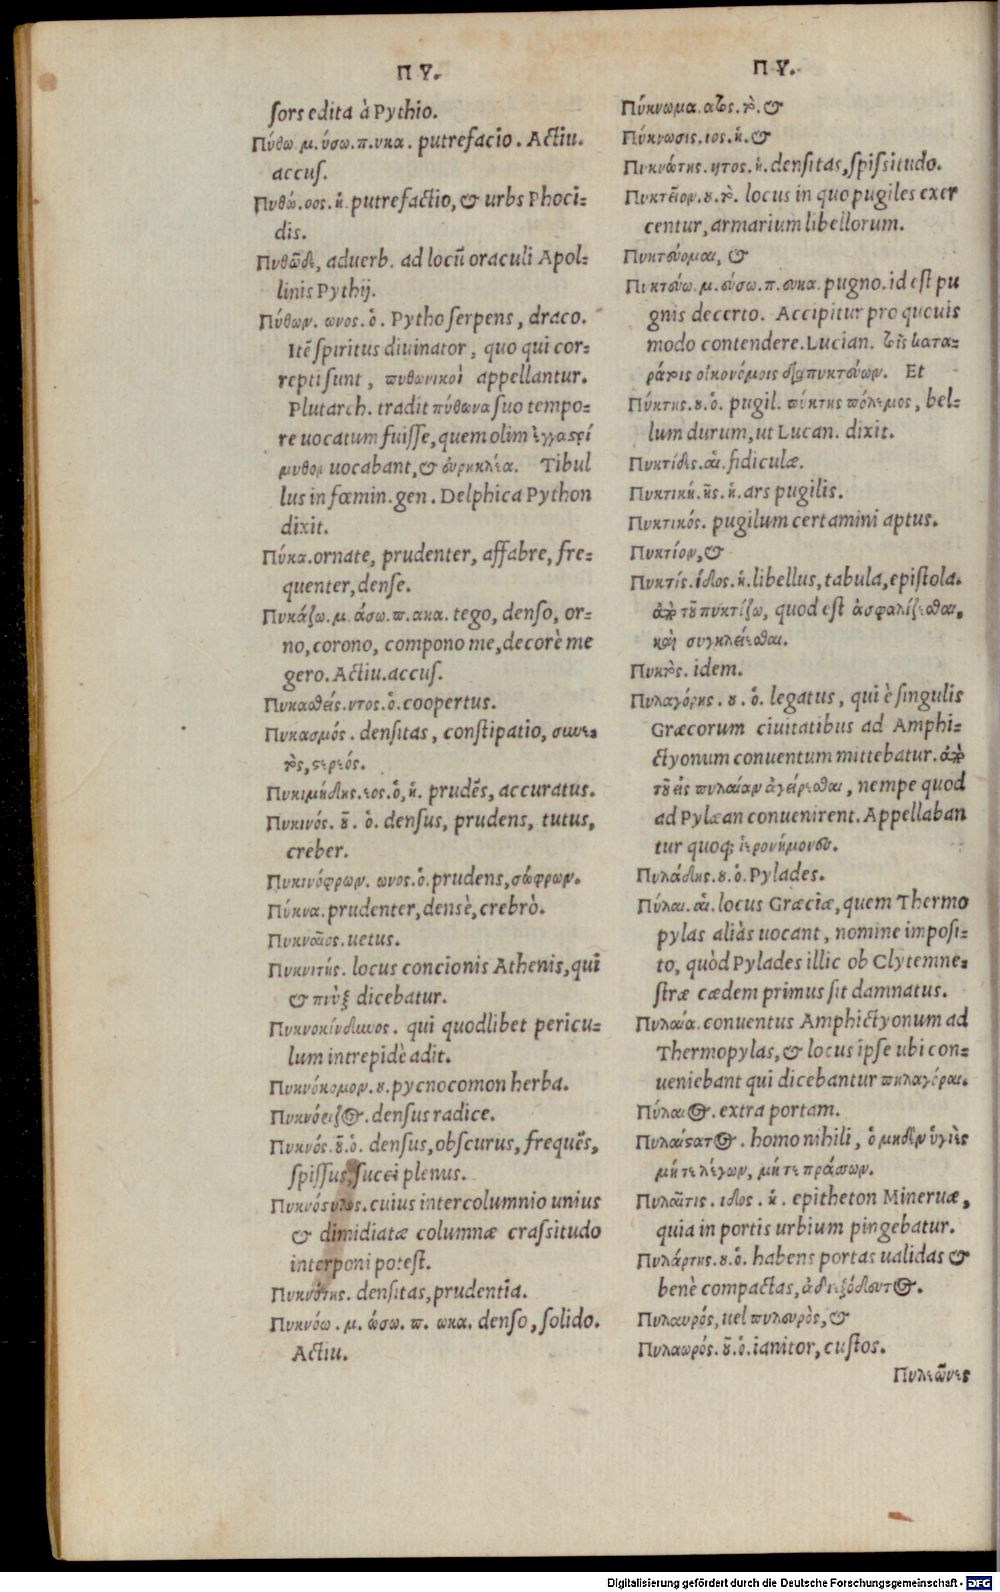 Π Υ.
sors edita à Pythio.
Πύθω. μ. ύσω. π. υκα. putrefacio. Actiu.
accus.
Πυθώ. οος. ἡ. putrefactio, & urbs Phoci-
dis.
Πυθῶδε, aduerb. ad locū oraculi Apol-
linis Pythij.
Πύθων. ωνος. ὁ. Pytho serpens, draco.
Itē spiritus diuinator, quo qui cor-
repti sunt, πυθωνικοὶ appellantur.
Plutarch. tradit πύθωνα suo tempo-
re uocatum fuisse, quem olim ἐγγαστρί
μυθον uocabant, & εὐρυκλέα. Tibul
lus in fœmin. gen. Delphica Python
dixit.
Πύκα. ornate, prudenter, affabre, fre-
quenter, dense.
Πυκάζω. μ. άσω. π. ακα. tego, denso, or-
no, corono, compono me, decorè me
gero. Actiu. accus.
Πυκαθείς. ντος. ὁ. coopertus.
Πυκασμός. densitas, constipatio, συνε-
τὸς, στερεός.
Πυκιμήδης. εος. ὁ, ἡ. prudēs, accuratus.
Πυκινός. οῦ. ὁ. densus, prudens, tutus,
creber.
Πυκινόφρων. ωνος. ὁ. prudens, σώφρων.
Πύκνα. prudenter, densè, crebrò.
Πυκναῖος. uetus.
Πυκνιτής. locus concionis Athenis, qui
& πνὺξ dicebatur.
Πυκνοκίνδυνος. qui quodlibet pericu-
lum intrepidè adit.
Πυκνόκομον. ου. pycnocomon herba.
Πυκνόριζος. densus radice.
Πυκνός. οῦ. ὁ. densus, obscurus, frequēs,
spissus, succi plenus.
Πυκνόστυλος. cuius intercolumnio unius
& dimidiatæ columnæ crassitudo
interponi potest.
Πυκνότης. densitas, prudentia.
Πυκνόω. μ. ώσω. π. ωκα. denso, solido.
Actiu.
Π Υ.
Πύκνωμα. ατος. τὸ. &
Πύκνωσις. ιος. ἡ. &
Πυκνώτης. ητος. ἡ. densitas, spissitudo.
Πυκτεῖον. ου. τὸ. locus in quo pugiles exer
centur, armarium libellorum.
Πυκτεύομαι, &
Πυκτεύω. μ. εύσω. π. ευκα. pugno. id est pu
gnis decerto. Accipitur pro quouis
modo contendere. Lucian. τοῖς κατα-
ράτοις οἰκονόμοις διαπυκτεύων. Et
Πύκτης. ου. ὁ. pugil. πύκτης πόλεμος, bel-
lum durum, ut Lucan. dixit.
Πυκτίδες. αἱ. fidiculæ.
Πυκτική. ῆς. ἡ. ars pugilis.
Πυκτικός. pugilum certamini aptus.
Πυκτίον, &
Πυκτίς. ίδος. ἡ. libellus, tabula, epistola.
ἀπὸ τοῦ πυκτίζω, quod est ἀσφαλίζεσθαι,
καὶ συγκλείεσθαι.
Πυκτὸς. idem.
Πυλαγόρης. ου. ὁ. legatus, qui è singulis
Græcorum ciuitatibus ad Amphi-
ctyonum conuentum mittebatur. ἀπὸ
τοῦ εἰς πυλαίαν ἀγείρεσθαι, nempe quod
ad Pylæan conuenirent. Appellaban
tur quoq; ἱερομνήμονες.
Πυλάδης. ου. ὁ. Pylades.
Πύλαι. αἱ. locus Græciæ, quem Thermo
pylas aliàs uocant, nomine imposi-
to, quòd Pylades illic ob Clytemne-
stræ cædem primus sit damnatus.
Πυλαία. conuentus Amphictyonum ad
Thermopylas, & locus ipse ubi con-
ueniebant qui dicebantur πυλαγόραι.
Πύλαιος. extra portam.
Πυλαίστατος. homo nihili, ὁ μηδὲν ὑγιὲς
μήτε λέγων, μήτε πράσσων.
Πυλαῖτις. ιδος. ἡ. epitheton Mineruæ,
quia in portis urbium pingebatur.
Πυλάρτης. ου. ὁ. habens portas ualidas &
benè compactas, ἀδιεξόδευτος.
Πυλαυρός, uel πυλευρὸς, &
Πυλαωρός. οῦ. ὁ. ianitor, custos.
Πυλεῶνες
Digitalisierung gefördert durch die Deutsche Forschungsgemeinschaft - DFG